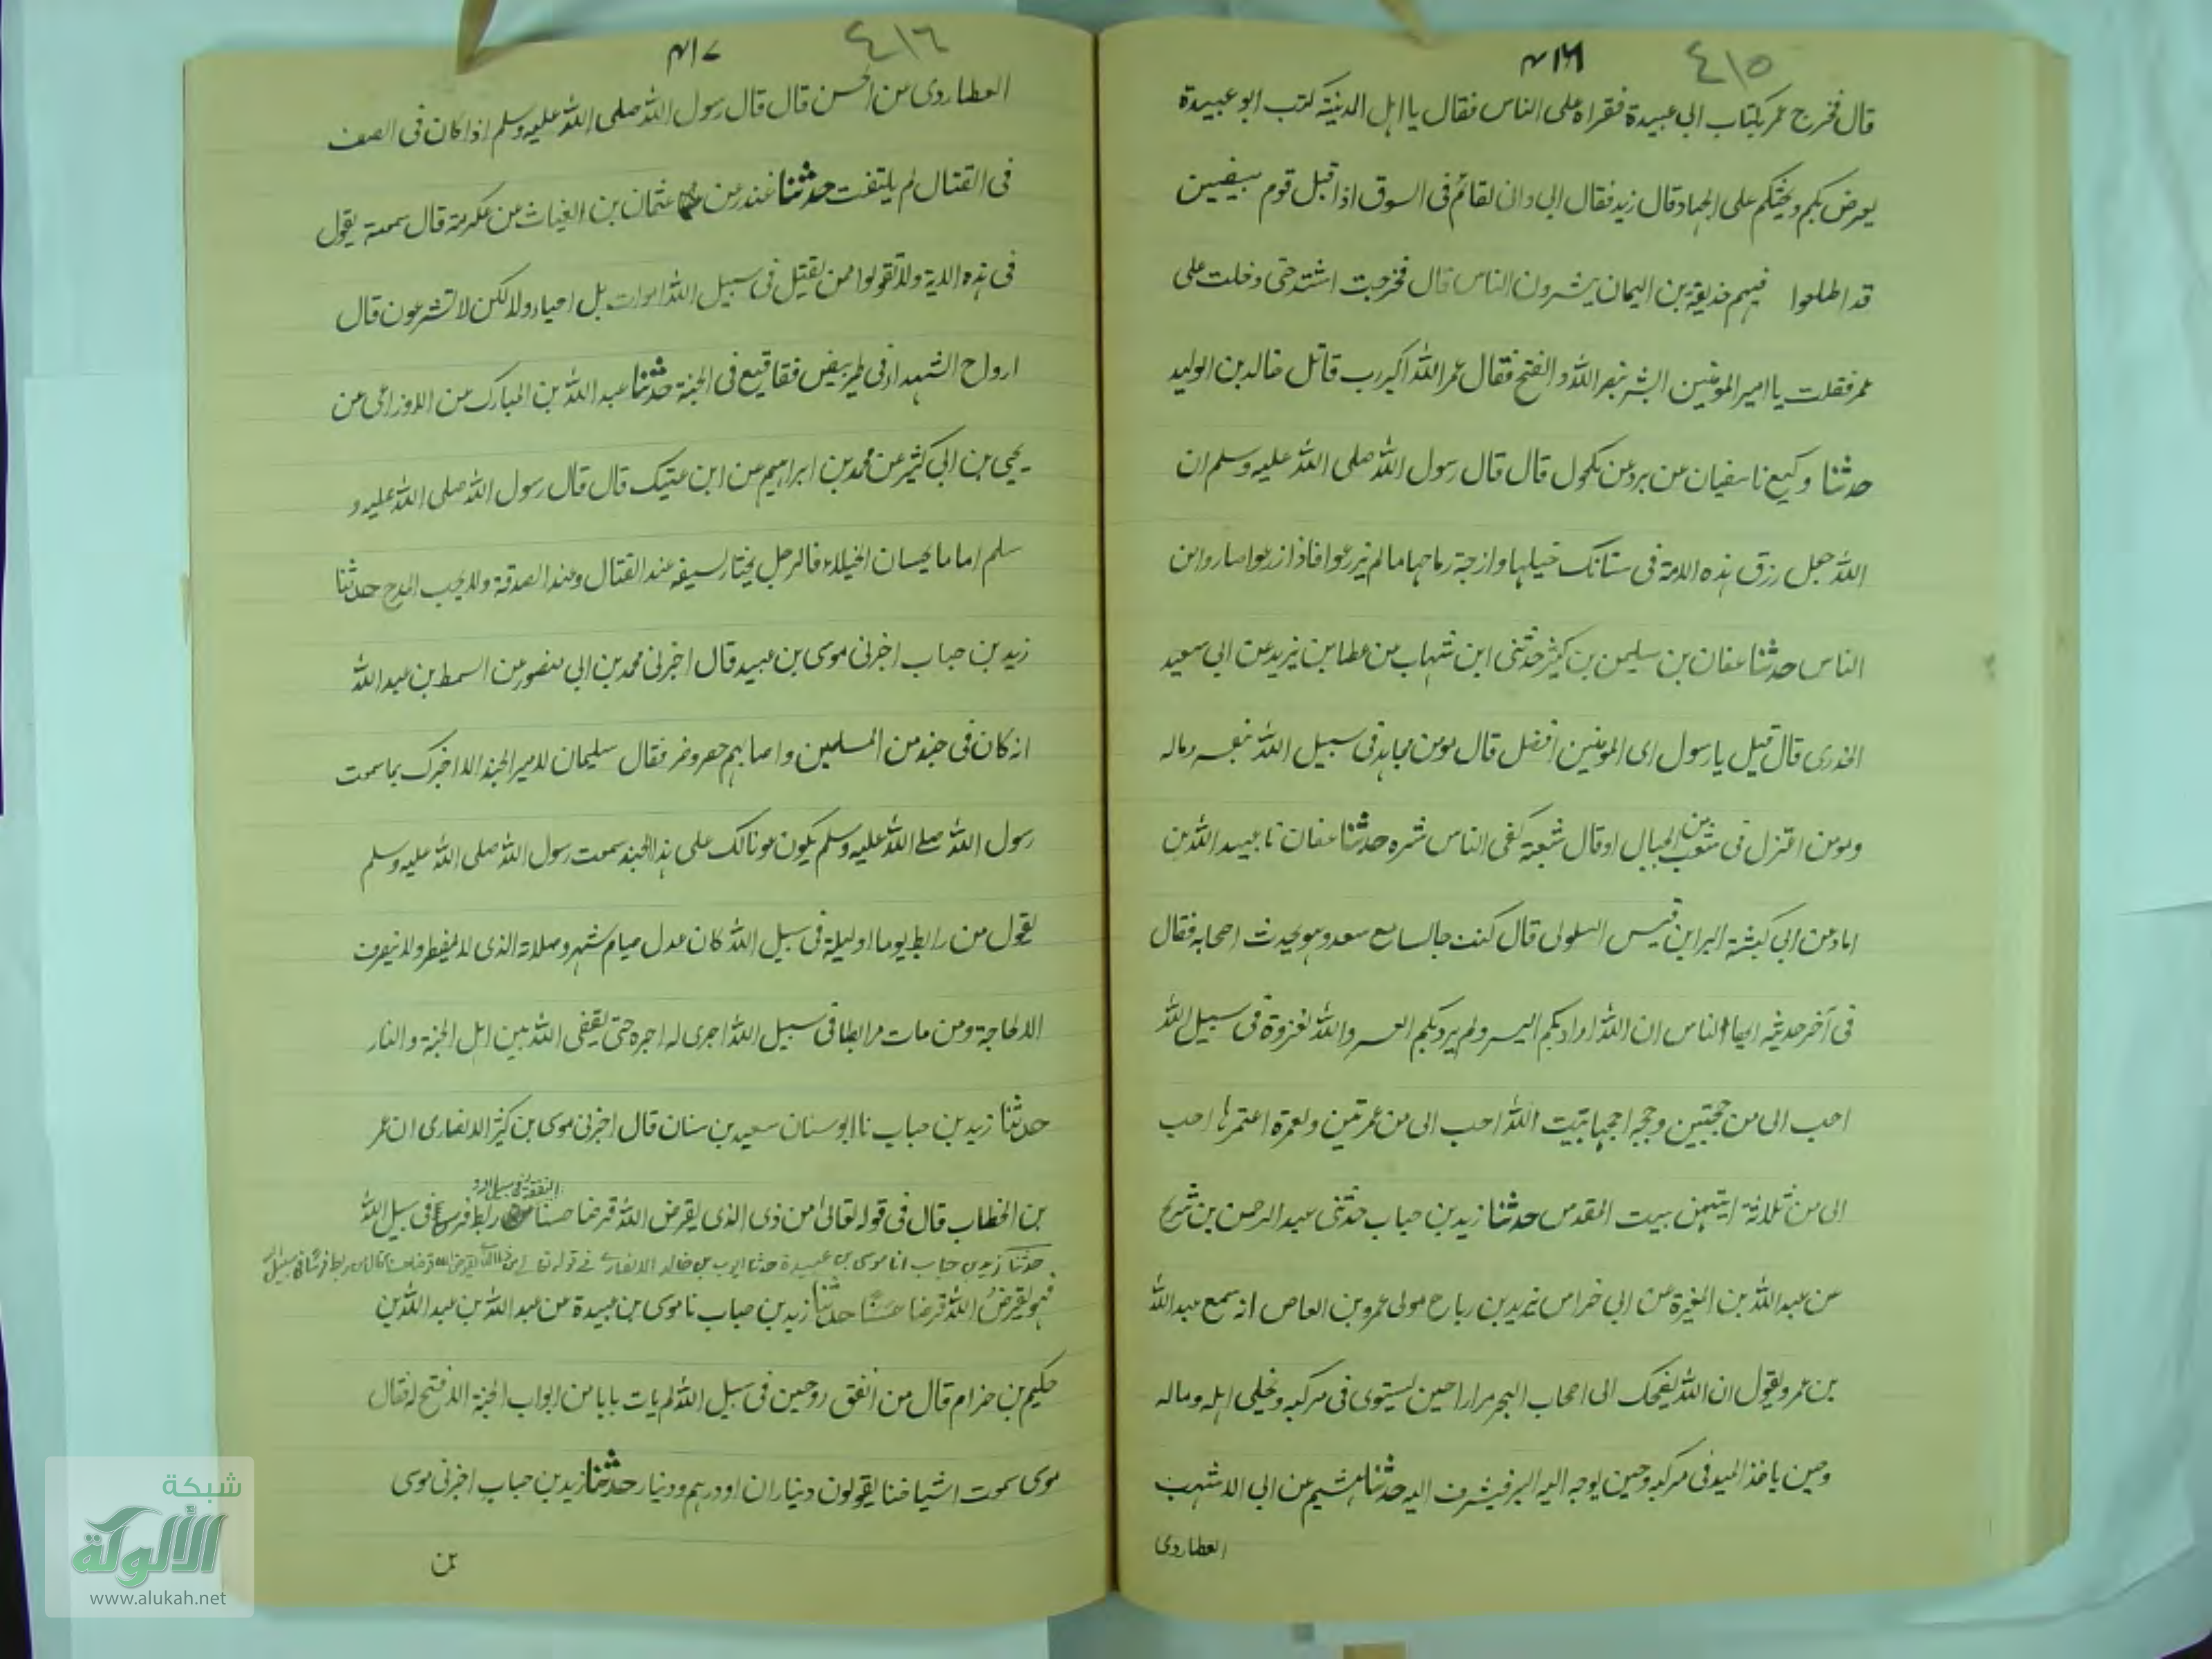 ٤١٥
٤١٦
قال فخرج عمر بكتاب ابى عبيدة فقراه على الناس فقال يا اهل المدينة كتب ابو عبيدة
يعرض بكم ويحثكم على الجهاد قال زيد فقال ابى وانى لقائم فى السوق اذ اقبل قوم مبيضين
قد اطلعوا فيهم حذيفة بن اليمان يبشرون الناس قال فخرجت اشتد حتى دخلت على
عمر فقلت يا امير المومنين ابشر بنصر الله والفتح فقال عمر الله اكبر رب قائل خالد بن الوليد
حدثنا وكيع نا سفيان عن برد عن مكحول قال قال رسول الله صلى الله عليه وسلم ان
الله جعل رزق هذه الامة فى سنابك خيلها وازجة رماحها مالم يزرعوا فاذا زرعوا صاروا من
الناس حدثنا عفان بن سليمن بن كثير حدثنى ابن شهاب عن عطا بن يزيد عن ابى سعيد
الخدرى قال قيل يا رسول اى المومنين افضل قال مومن مجاهد فى سبيل الله بنفسه وماله
ومومن اعتزل فى شعب من الجبال او قال شعبة كفى الناس شره حدثنا عفان نا عبيد الله بن
اياد عن ابى كبشة البرا بن قيس السلولى قال كنت جالسا مع سعد وهو يحدث اصحابه فقال
فى آخر حديثه ايها الناس ان الله اراد بكم اليسر ولم يرد بكم العسر والله لغزوة فى سبيل الله
احب الى من حجتين وحجه احجها ببيت الله احب الى من عمرتين ولعمرة اعتمرها احب
الى من ثلاثة اتيتهن بيت المقدس حدثنا زيد بن حباب حدثنى عبد الرحمن بن شريح
عن عبد الله بن المغيرة عن ابى خراس يزيد بن رباح مولى عمرو بن العاص انه سمع عبد الله
بن عمرو يقول ان الله يضحك الى اصحاب البحر مرارا حين يستوى فى مركبه ويخلى اهله وماله
وحين ياخذ الميد فى مركبه وحين يوجه اليه البر فيشرف اليه حدثنا هشيم عن ابى الاشهب
العطاردى
٤١٦
٤١٧
العطاردى عن الحسن قال قال رسول الله صلى الله عليه وسلم اذا كان فى الصف
فى القتال لم يلتفت حدثنا غندر عن عثمان بن الغياث عن عكرمة قال سمعته يقول
فى هذه الاية ولا تقولوا لمن يقتل فى سبيل الله اموات بل احياء ولاكن لا تشرعون قال
ارواح الشهداء فى طير بيض فقاقيع فى الجنة حدثنا عبد الله بن المبارك عن الاوزاعى عن
يحيى بن ابى كثير عن محمد بن ابراهيم عن ابن عتيك قال قال رسول الله صلى الله عليه و
سلم اما ما يحسان الخيلاء فالرجل يختار بسيفه عند القتال وعند الصدقة ولا يحب المرح حدثنا
زيد بن حباب اخبرنى موسى بن عبيد قال اخبرنى محمد بن ابى منصور عن السمط بن عبد الله
انه كان فى جند من المسلمين واصابهم حصر وضر فقال سليمان لامير الجند الا اخبرك بما سمعت
رسول الله صلے الله عليه وسلم يكون عونا لك على هذا الجند سمعت رسول الله صلى الله عليه وسلم
يقول من رابط يوما او ليلة فى سبيل الله كان عدل صيام شهر وصلاته الذى لا يفطر ولا ينصرف
الا لحاجة ومن مات مرابطا فى سبيل الله اجرى له اجره حتى يقضى الله بين اهل الجنة والنار
حدثنا زيد بن حباب نا ابو سنان سعيد بن سنان قال اخبرنى موسى بن كثير الانصارى ان عمر
النفقة فى سبيل الله
بن الخطاب قال فى قوله تعالى من ذى الذى يقرض الله قرضا حسنا رابط فرسا فى سبيل الله
حدثنا زيد بن حباب انا موسى بن عبيدة حدثنا ايوب بن خالد الانصارى فى قوله تعالى من ذا الذى يقرض الله قرضا حسنا قال من ربط فرسا فى سبيل الله
فهو يقرض الله قرضا حسنًا حدثنا زيد بن حباب نا موسى بن عبيدة عن عبد الله بن عبد الله بن
حكيم بن حزام قال من انفق زوجين فى سبيل الله لم يات بابا من ابواب الجنة الا فتح له فقال
موسى سمعت اشياخنا يقولون ديناران او درهم ودينار حدثنا زيد بن حباب اخبرنى موسى
بن
شبكة
الألوكة
www.alukah.net